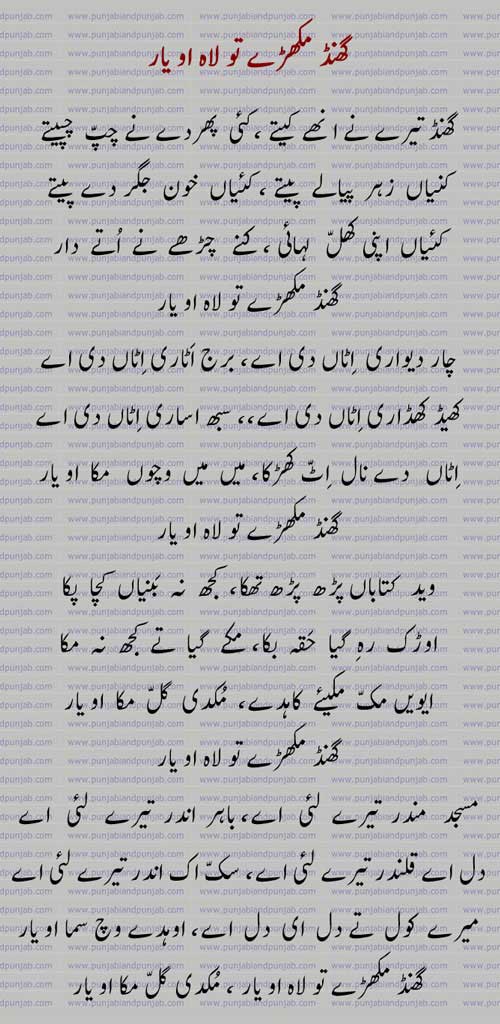 گھنڈ مکھڑے تو لاہ او یار
گھنڈ تیرے نے انھے کیتے ، کئی پھردے نے چپّ چپیتے
کنیاں زہر پیالے پیتے ، کئیاں خون جگر دے پیتے
کئیاں اپنی کھلّ لہائی ، کنے چڑھے نے اُتے دار
گھنڈ مکھڑے تو لاہ او یار
چار دیواری اِٹاں دی اے، برج اٹاری اِٹاں دی اے
کھیڈ کھڈاری اِٹاں دی اے،، سبھ اساری اِٹاں دی اے
اِٹاں دے نال اِٹّ کھڑکا، میں میں وچوں مکا او یار
گھنڈ مکھڑے تو لاہ او یار
وید کتاباں پڑھ پڑھ تھکا، کجھ نہ بنیاں کچا پکا
اوڑک رہِ گیا حَقہ بکا، مکے گیا تے کجھ نہ مکا
ایویں مکّ مکیئے کاہدے، مُکدی گلّ مکا او یار
گھنڈ مکھڑے تو لاہ او یار
مسجد مندر تیرے لئی اے، باہر اندر تیرے لئی اے
دل اے قلندر تیرے لئی اے، سکّ اک اندر تیرے لئی اے
میرے کول تے دل ای دل اے، اوہدے وچ سما او یار
گھنڈ مکھڑے تو لاہ او یار ، مُکدی گلّ مکا او یار
www.punjabiandpunjab.com